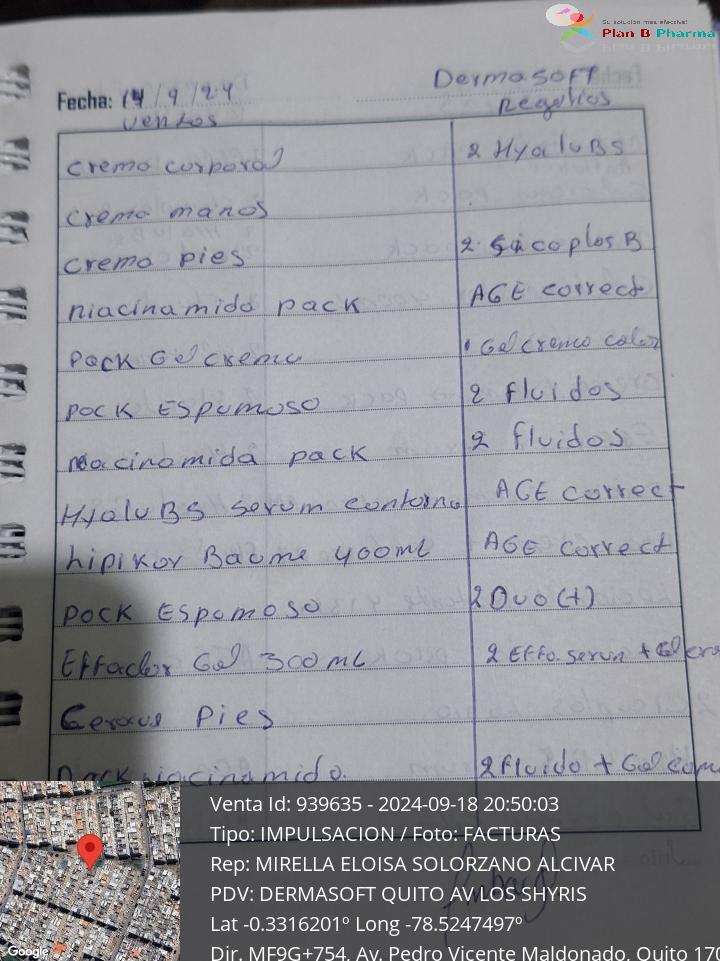 Su solución más efectiva!
Plan B Pharma
Dermasoft
Fecha: 14/9/24
ventas regalias
cremo corporal 2 Hyalu BS
cremo manos
cremo pies 2 Sicoplos B
niacinamida pack AGE correct
Pack Gel crema Gel cremo color
Pack Espumoso 2 fluidos
niacinamida pack 2 fluidos
Hyalu BS serum contorno AGE correct
hipikor Baume 400ml AGE correct
Pack Espumoso 2 Duo (+)
Effaclar Gel 300 ml 2 Effa. serun + Gel
Cerave Pies
Pack niacinamida. 2 fluido + Gel
Venta Id: 939635 - 2024-09-18 20:50:03
Tipo: IMPULSACION / Foto: FACTURAS
Rep: MIRELLA ELOISA SOLORZANO ALCIVAR
PDV: DERMASOFT QUITO AV LOS SHYRIS
Lat -0.3316201º Long -78.5247497º
Dir. MF9G+754, Av. Pedro Vicente Maldonado, Quito 170
Google